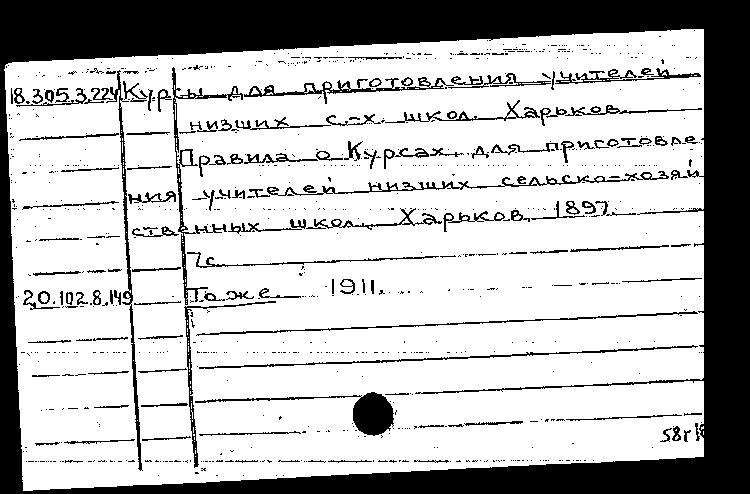 18.305.3.224 Курсы для приготовления учителей
низших с.-х. школ. Харьков.
Правила о Курсах для приготовле-
ния учителей низших сельско-хозяй
ственных школ. Харьков, 1897.
7с.
20.102.8.149 То же. 1911.